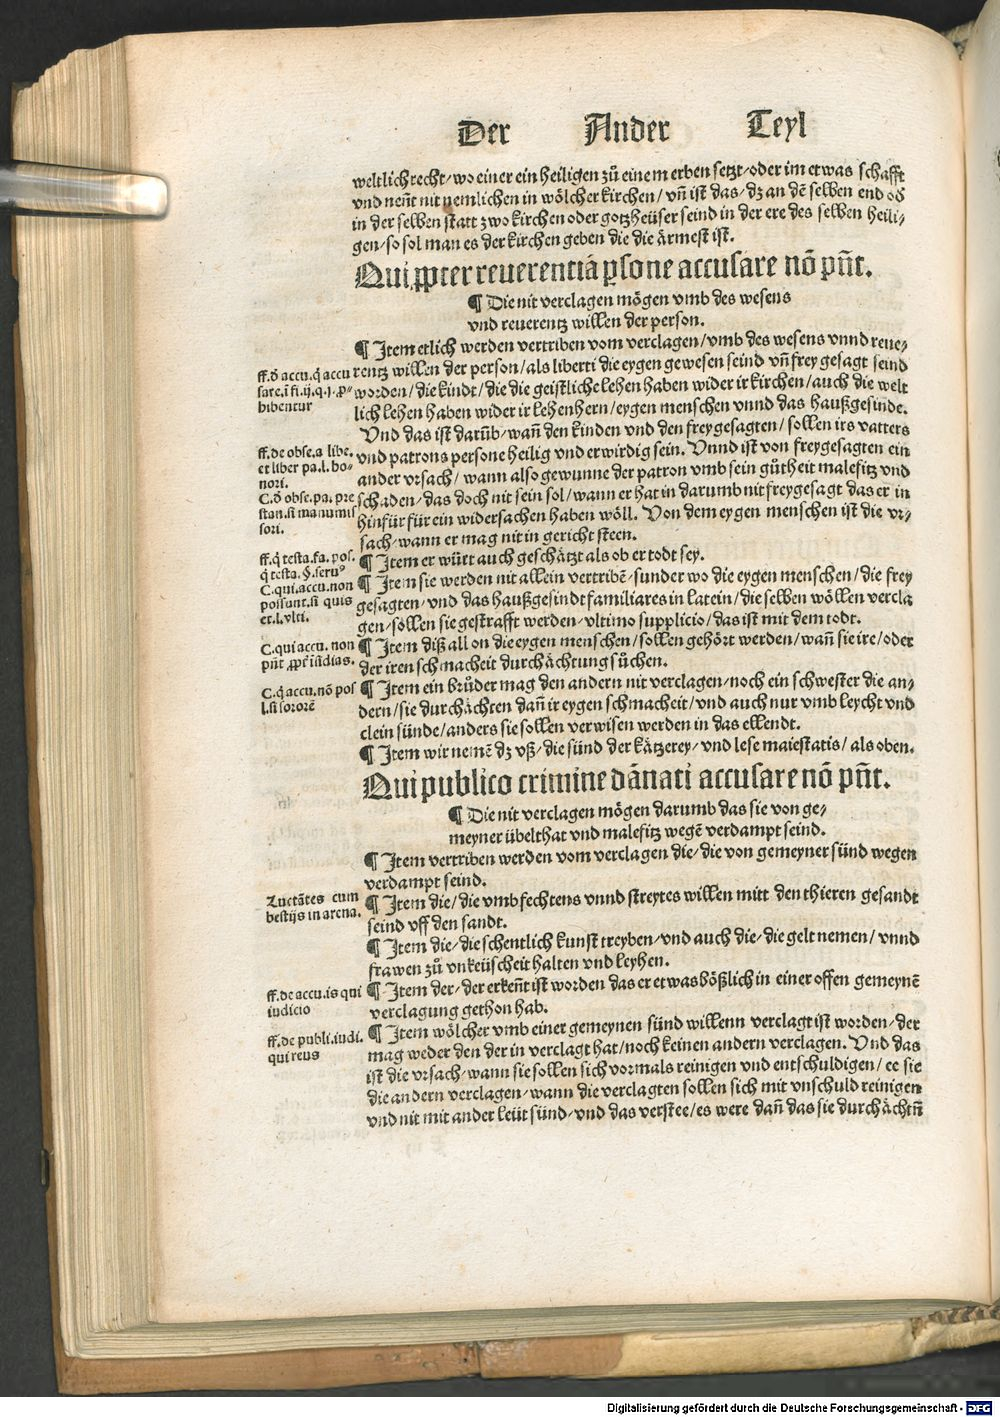 Der Ander Teyl
weltlich recht/ wo einer ein heiligen zů einem erben setzt/ oder im etwas schafft
vnd neñt nit nemlichen in wölcher kirchen/ vñ ist das/ dz an dẽ selben end od̕
in der selben statt zwo kirchen oder gotzheüser seind in der ere des selben heili⸗
gen/ so sol man es der kirchen geben die die ärmest ist.
Qui ꝓpter reuerentiã ꝑsone accusare nõ pñt.
¶ Die nit verclagen mögen vmb des wesens
vnd reuerentz willen der person.
¶ Item etlich werden vertriben vom verclagen/ vmb des wesens vnnd reue⸗
rentz willen der person/ als liberti die eygen gewesen seind vñ frey gesagt seind
worden/ die kindt/ die die geistliche lehen haben wider ir kirchen/ auch die welt
lich lehen haben wider ir lehenhern/ eygen menschen vnnd das haußgesinde.
Vnd das ist darũb/ wañ den kinden vnd den freygesagten/ sollen irs vatters
vnd patrons persone heilig vnd erwirdig sein. Vnnd ist von freygesagten ein
ander vrsach/ wann also gewunne der patron vmb sein gůtheit malefitz vnd
schaden/ das doch nit sein sol/ wann er hat in darumb nit freygesagt das er in
hinfür für ein widersachen haben wöll. Von dem eygen menschen ist die vr⸗
sach/ wann er mag nit in gericht steen.
¶ Item er würt auch geschätzt als ob er todt sey.
¶ Item sie werden nit allein vertribẽ/ sunder wo die eygen menschen/ die frey
gesagten/ vnd das haußgesindt familiares in latein/ die selben wöllen vercla
gen/ söllen sie gestrafft werden/ vltimo supplicio/ das ist mit dem todt.
¶ Item diß all on die eygen menschen/ sollen gehört werden/ wañ sie ire/ oder
der iren schmacheit durchächtung sůchen.
¶ Item ein brůder mag den andern nit verclagen/ noch ein schwester die an⸗
dern/ sie durchächten dañ ir eygen schmacheit/ vnd auch nur vmb leycht vnd
clein sünde/ anders sie sollen verwisen werden in das ellendt.
¶ Item wir nemẽ dz vß/ die sünd der kätzerey/ vnd lese maiestatis/ als oben.
Qui publico crimine dãnati accusare nõ pñt.
¶ Die nit verclagen mögen darumb das sie von ge⸗
meyner übelthat vnd malefitz wegẽ verdampt seind.
¶ Item vertriben werden vom verclagen die/ die von gemeyner sünd wegen
verdampt seind.
¶ Item die/ die vmb fechtens vnnd streytes willen mitt den thieren gesandt
seind vff den sandt.
¶ Item die/ die schentlich kunst treyben/ vnd auch die/ die gelt nemen/ vnnd
frawen zů vnkeüscheit halten vnd leyhen.
¶ Item der/ der erkeñt ist worden das er etwas bößlich in einer offen gemeynẽ
verclagung gethon hab.
¶ Item wölcher vmb einer gemeynen sünd willenn verclagt ist worden/ der
mag weder den der in verclagt hat/ noch keinen andern verclagen. Vnd das
ist die vrsach/ wann sie sollen sich vormals reinigen vnd entschuldigen/ ee sie
die andern verclagen/ wann die verclagten sollen sich mit vnschuld reinigen
vnd nit mit ander leüt sünd/ vnd das verstee/ es were dañ das sie durchächtñ
ff. d̕ accu. q̃ accu
sare. i fi. ij. q. j. ꝓ⸗
hibentur
ff. de obse. a libe.
et liber pa. l. ho⸗
nori.
C. d̕ obse. pa. pre
stan. si manumis
sori.
ff. q̃ testa. fa. pos.
q̃ testa. §. seruꝰ
C. qui. accu. non
possunt. si quis
et. l. vlti.
C. qui accu. non
pñt ꝓpt̕ iũdias.
C. q̃ accu. nõ pos
l. si sororẽ
Luctãtes cum
bestijs in arena.
ff. de accu. is qui
iudicio
ff. de publi. iudi.
qui reus
Digitalisierung gefördert durch die Deutsche Forschungsgemeinschaft - DFG